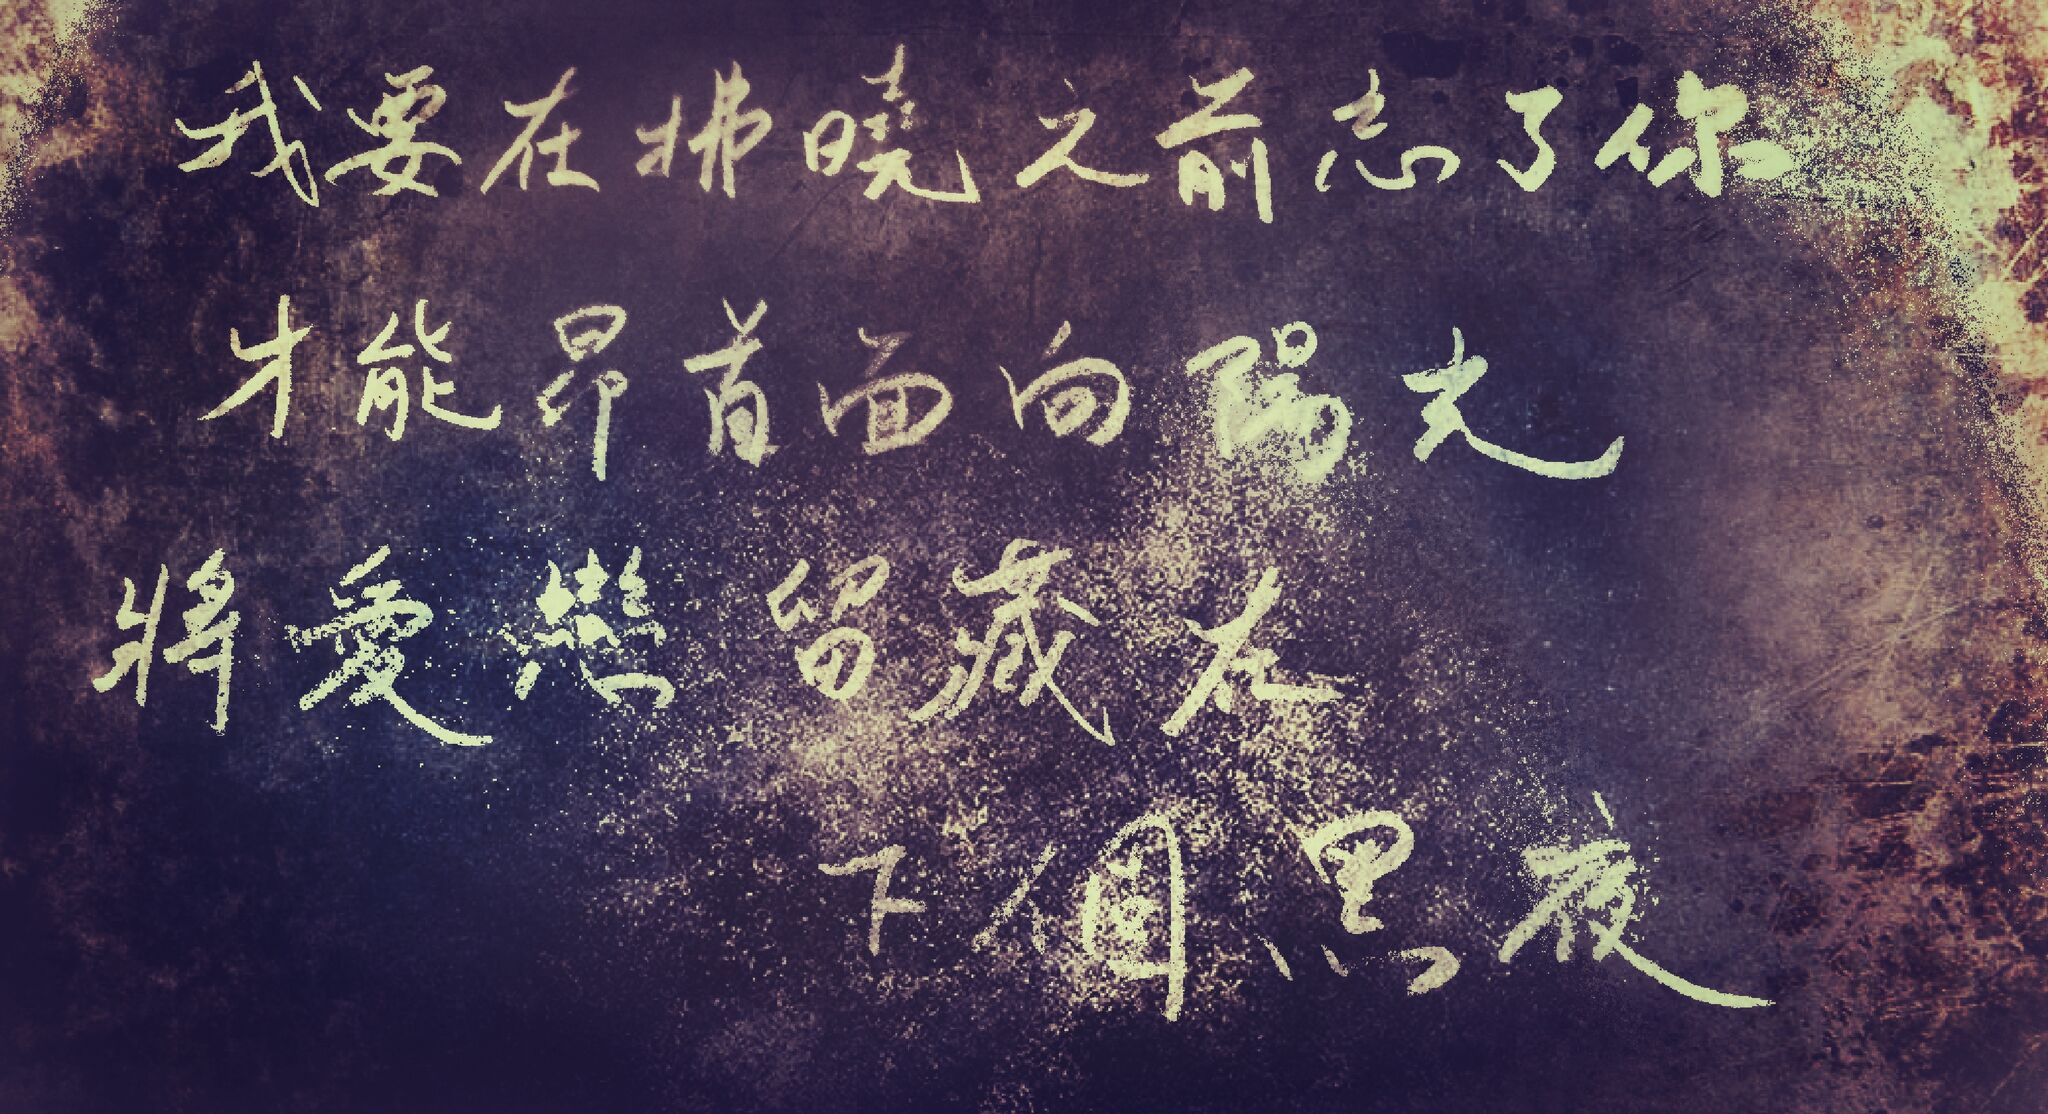 我要在拂曉之前忘了你
才能昂首面向陽光
將愛戀留藏在
下個黑夜